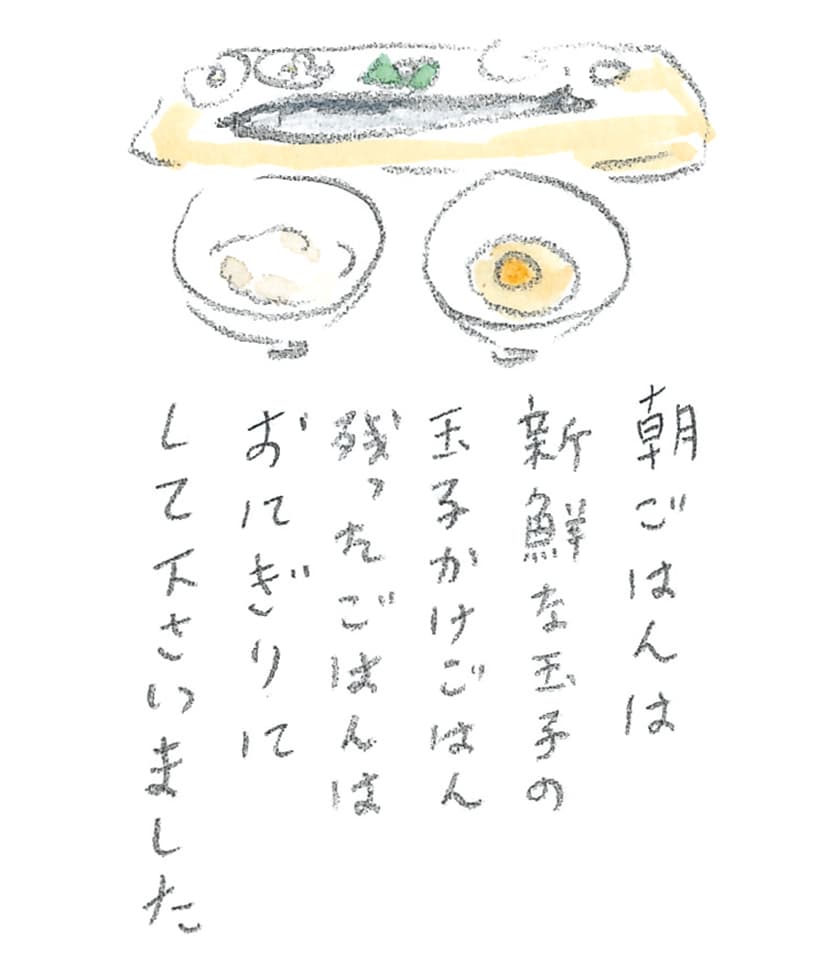 朝ごはんは
新鮮な玉子の
玉子かけごはん
残ったごはんは
おにぎりに
して下さいました